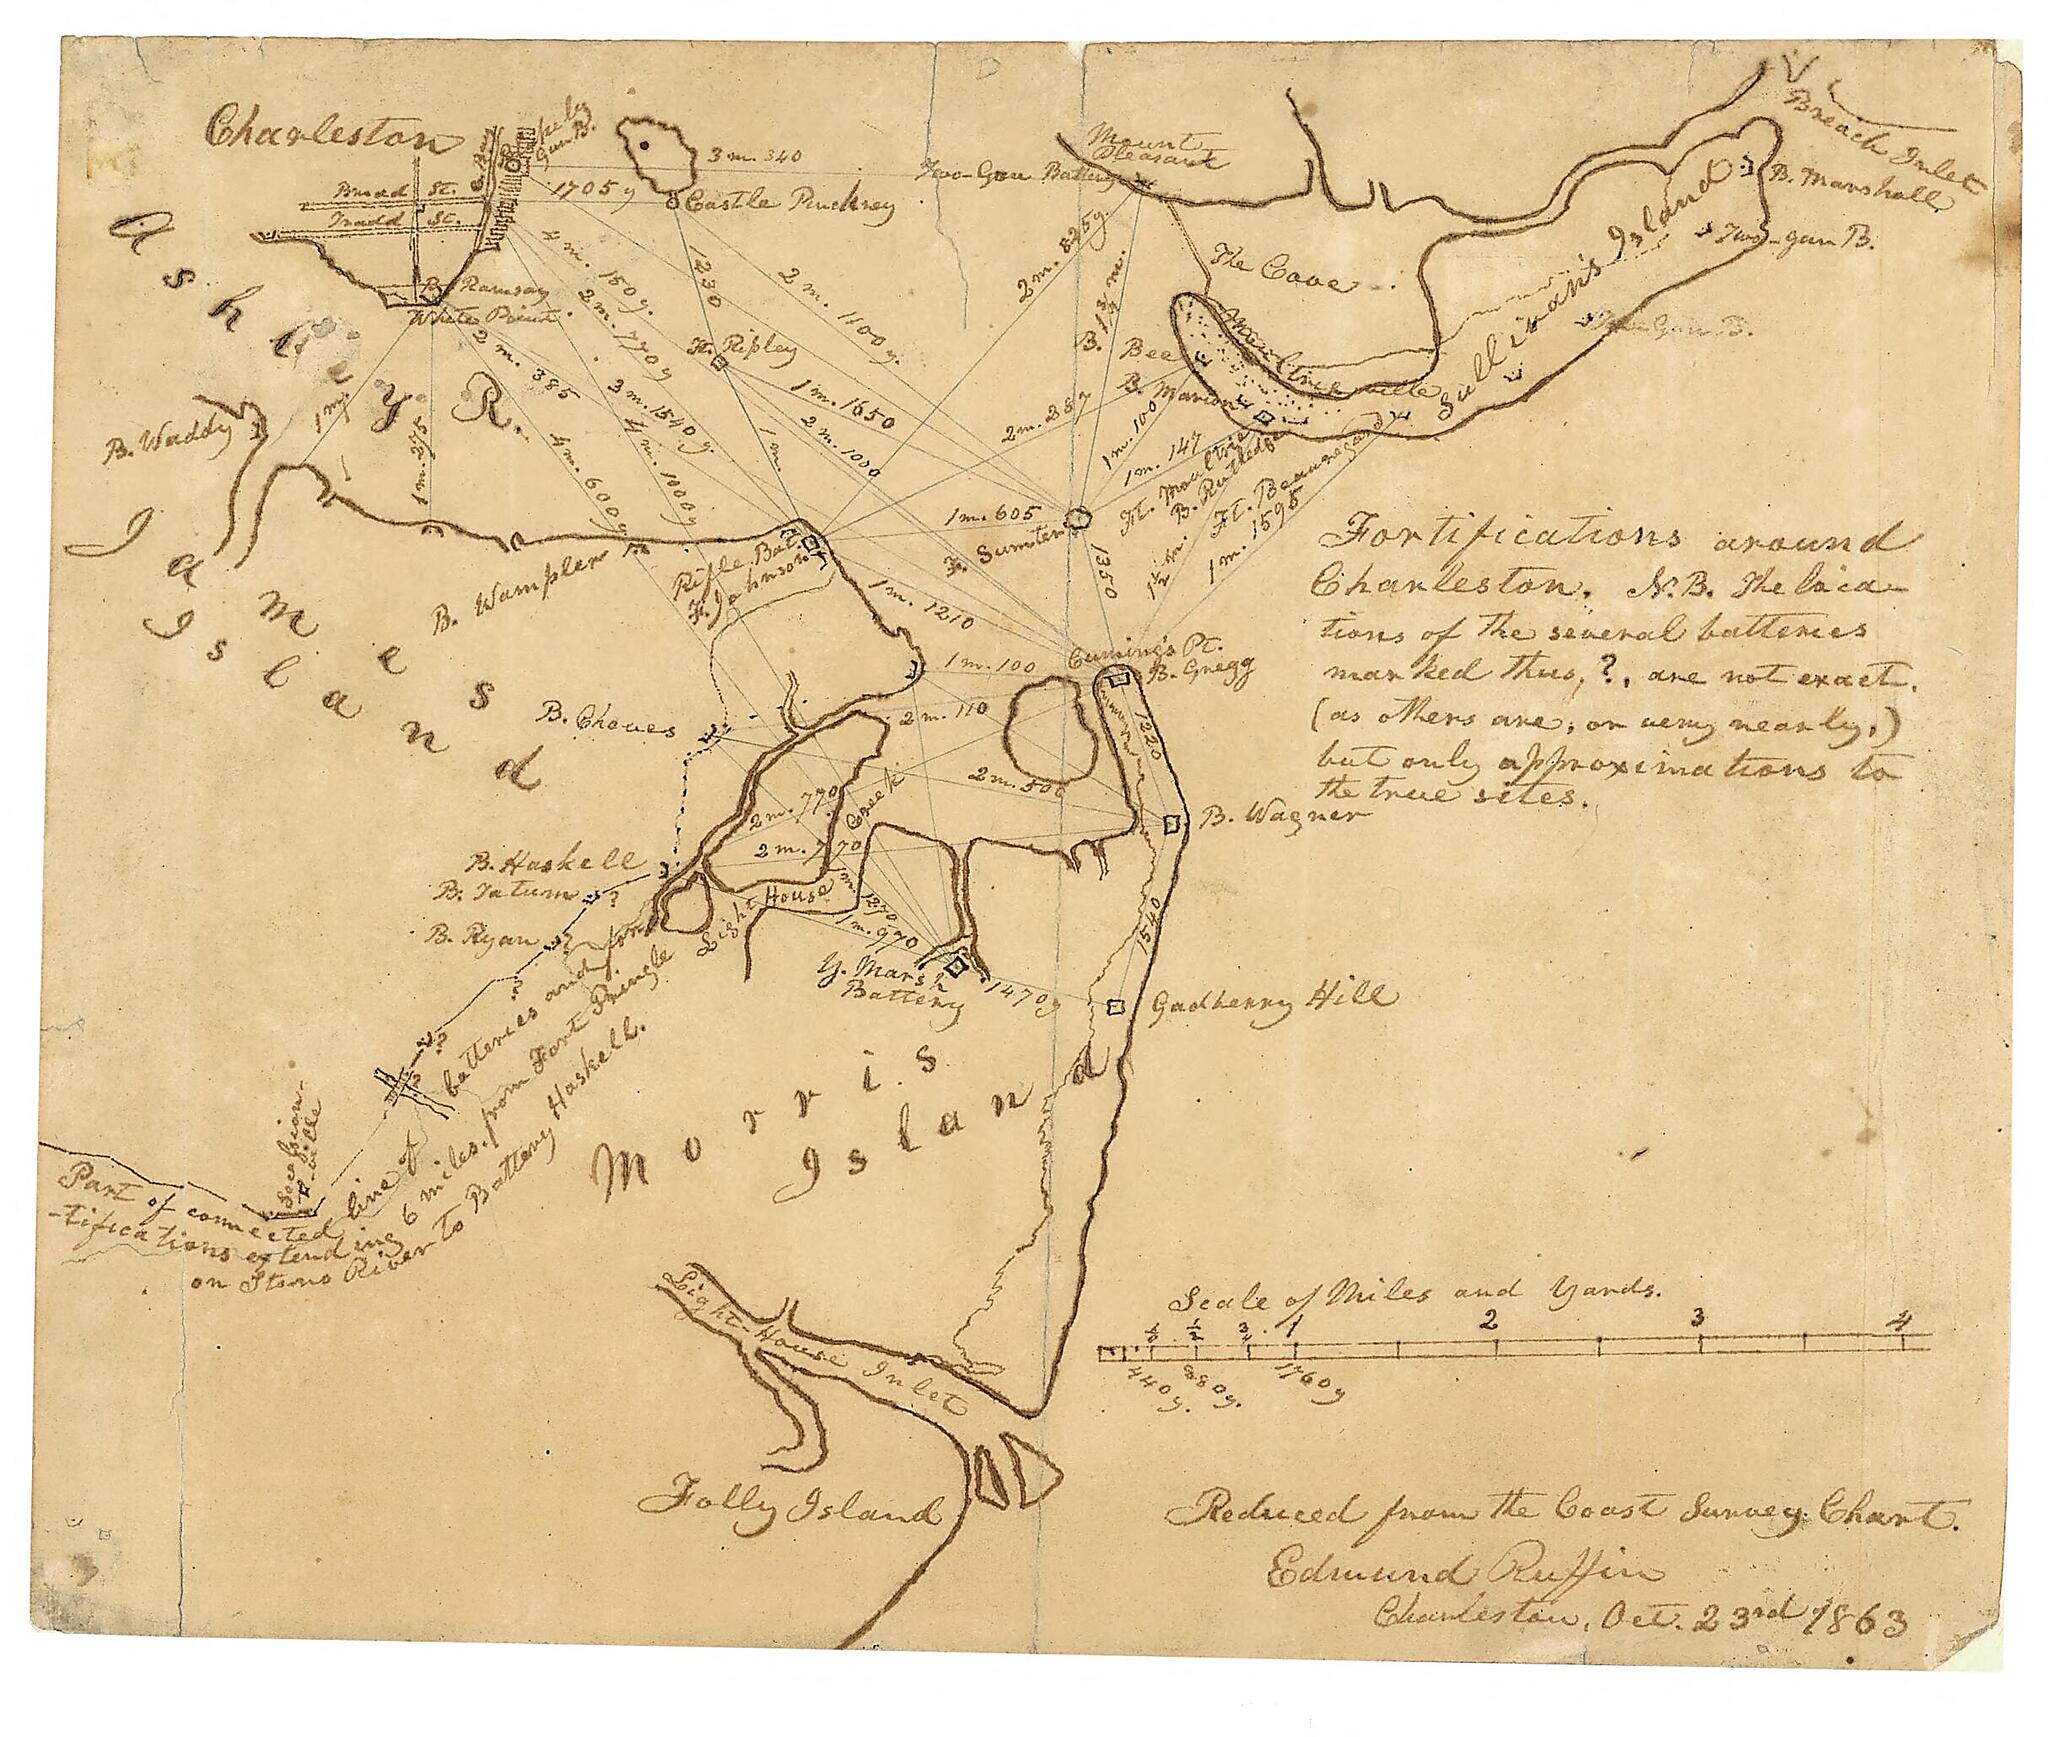 Charleston
Broad St.
Tradd St.
E. Bay
Gun B.
3 m. 340
1705 y
Castle Pinckney
Mount
Pleasant
Two-Gun Battery
Breach Inlet
B. Marshall
Two-gun B.
Two Gun B.
Sullivan's Island
The Cove
Moultrieville
B. Bee
B. Marion
Ashley R.
B. Ramsay
White Point
4 m. 150 y.
2 m. 770 y
1230
2 m. 1100 y.
2 m. 825 y.
1 3/4 m.
Ft. Ripley
2 m. 385
3 m. 1540 y.
4 m. 1000 y
4 m. 600 y
1 m. 275
1 m. 1650
2 m. 1000
1 m.
2 m. 287
1 m. 100
1 m. 147
Ft. Moultrie
B. Rutledge
Ft. Beauregard
1 m. 1595
B. Waddy
1 m. 605
F. Sumter
1350
James
Island
B. Wampler
Rifle Bat.
F. Johnson
1 m. 1210
1 m. 100
Cuming's Pt.
B. Gregg
Fortifications around
Charleston. N.B. The loca-
tions of the several batteries
marked thus, ?, are not exact.
(as others are, or very nearly,)
but only approximations to
the true sites.
B. Choves
2 m. 110
1220
2 m. 500
B. Wagner
2 m. 770
Creek
2 m. 770
B. Haskell
B. Tatum ?
B. Ryan ?
?
?
?
Light House
1 m. 1270
1 m. 970
Y. Marsh
Battery
1470 y
1540
Gadberry Hill
Morris
Island
Secession-
ville
Part of connected line of batteries and for-
-tifications extending 6 miles, from Fort Pringle
on Stono River to Battery Haskell.
Light-House Inlet
Folly Island
Scale of Miles and Yards.
1/4 1/2 3/4 1 2 3 4
440 y. 880 y. 1760 y
Reduced from the Coast Survey Chart.
Edmund Ruffin
Charleston, Oct. 23rd 1863